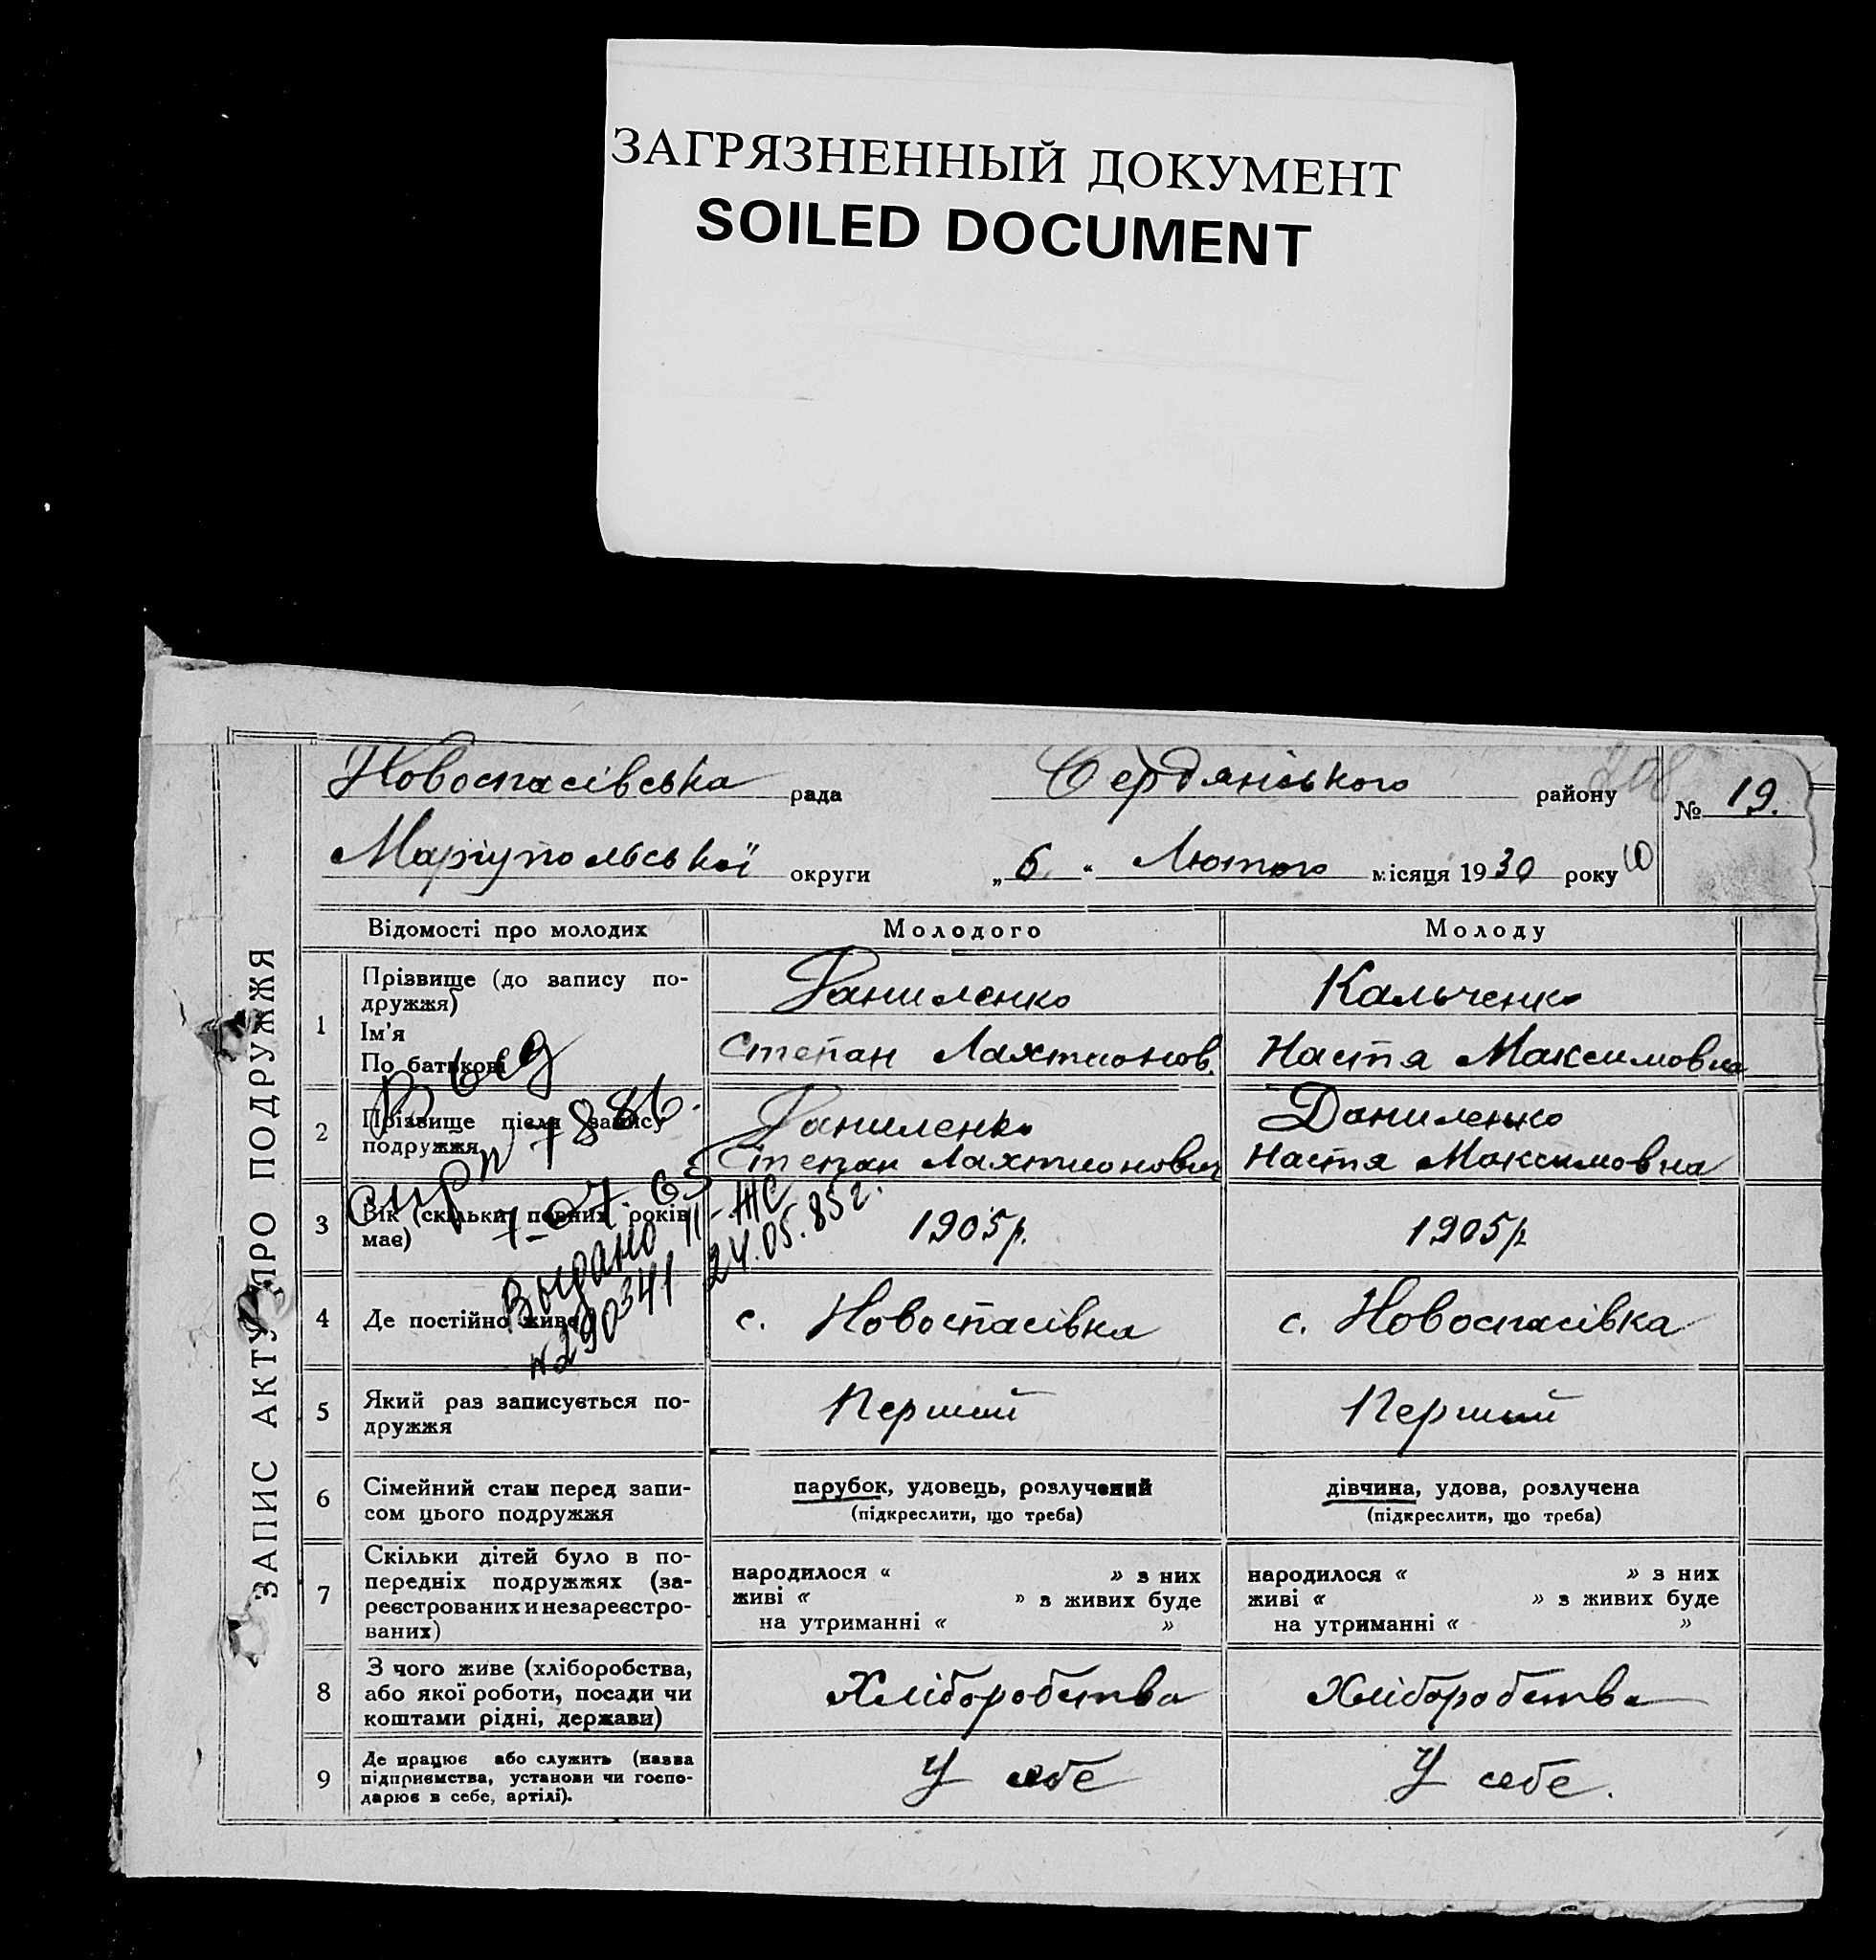 ЗАГРЯЗНЕННЫЙ ДОКУМЕНТ
SOILED DOCUMENT
Новоспасівська рада Бердянського району № 19.
Маріупольської округи „ 6 “ Лютого місяця 1930 року
ЗАПИС АКТУ ПРО ПОДРУЖЖЯ
Відомості про молодих Молодого Молоду
1 Прізвище (до запису по-
дружжя)
Ім'я
По батькові
Даниленко
Степан Лахтионов.
Кальченко
Настя Максимовна
2 Прізвище після запису
подружжя
Даниленко
Степан Лахтионович
Даниленко
Настя Максимовна
3 Вік (скільки повних років
має)
1905р.
1905р
Выдано II-ЖС
№290341 24.05.85г.
4 Де постійно живе
с. Новоспасівка
с. Новоспасівка
5 Який раз записується по-
дружжя
Перший
Перший
6 Сімейний стан перед запи-
сом цього подружжя
парубок, удовець, розлучений
(підкреслити, що треба)
дівчина, удова, розлучена
(підкреслити, що треба)
7 Скільки дітей було в по-
передніх подружжях (за-
реєстрованих и незареєстро-
ваних)
народилося « » з них
живі « » з живих буде
на утриманні « »
народилося « » з них
живі « » з живих буде
на утриманні « »
8 З чого живе (хліборобства,
або якої роботи, посади чи
коштами рідні, держави)
Хліборобства
Хліборобства
9 Де працює або служить (назва
підприємства, установи чи госпо-
дарює в себе, артілі).
У себе
У себе.